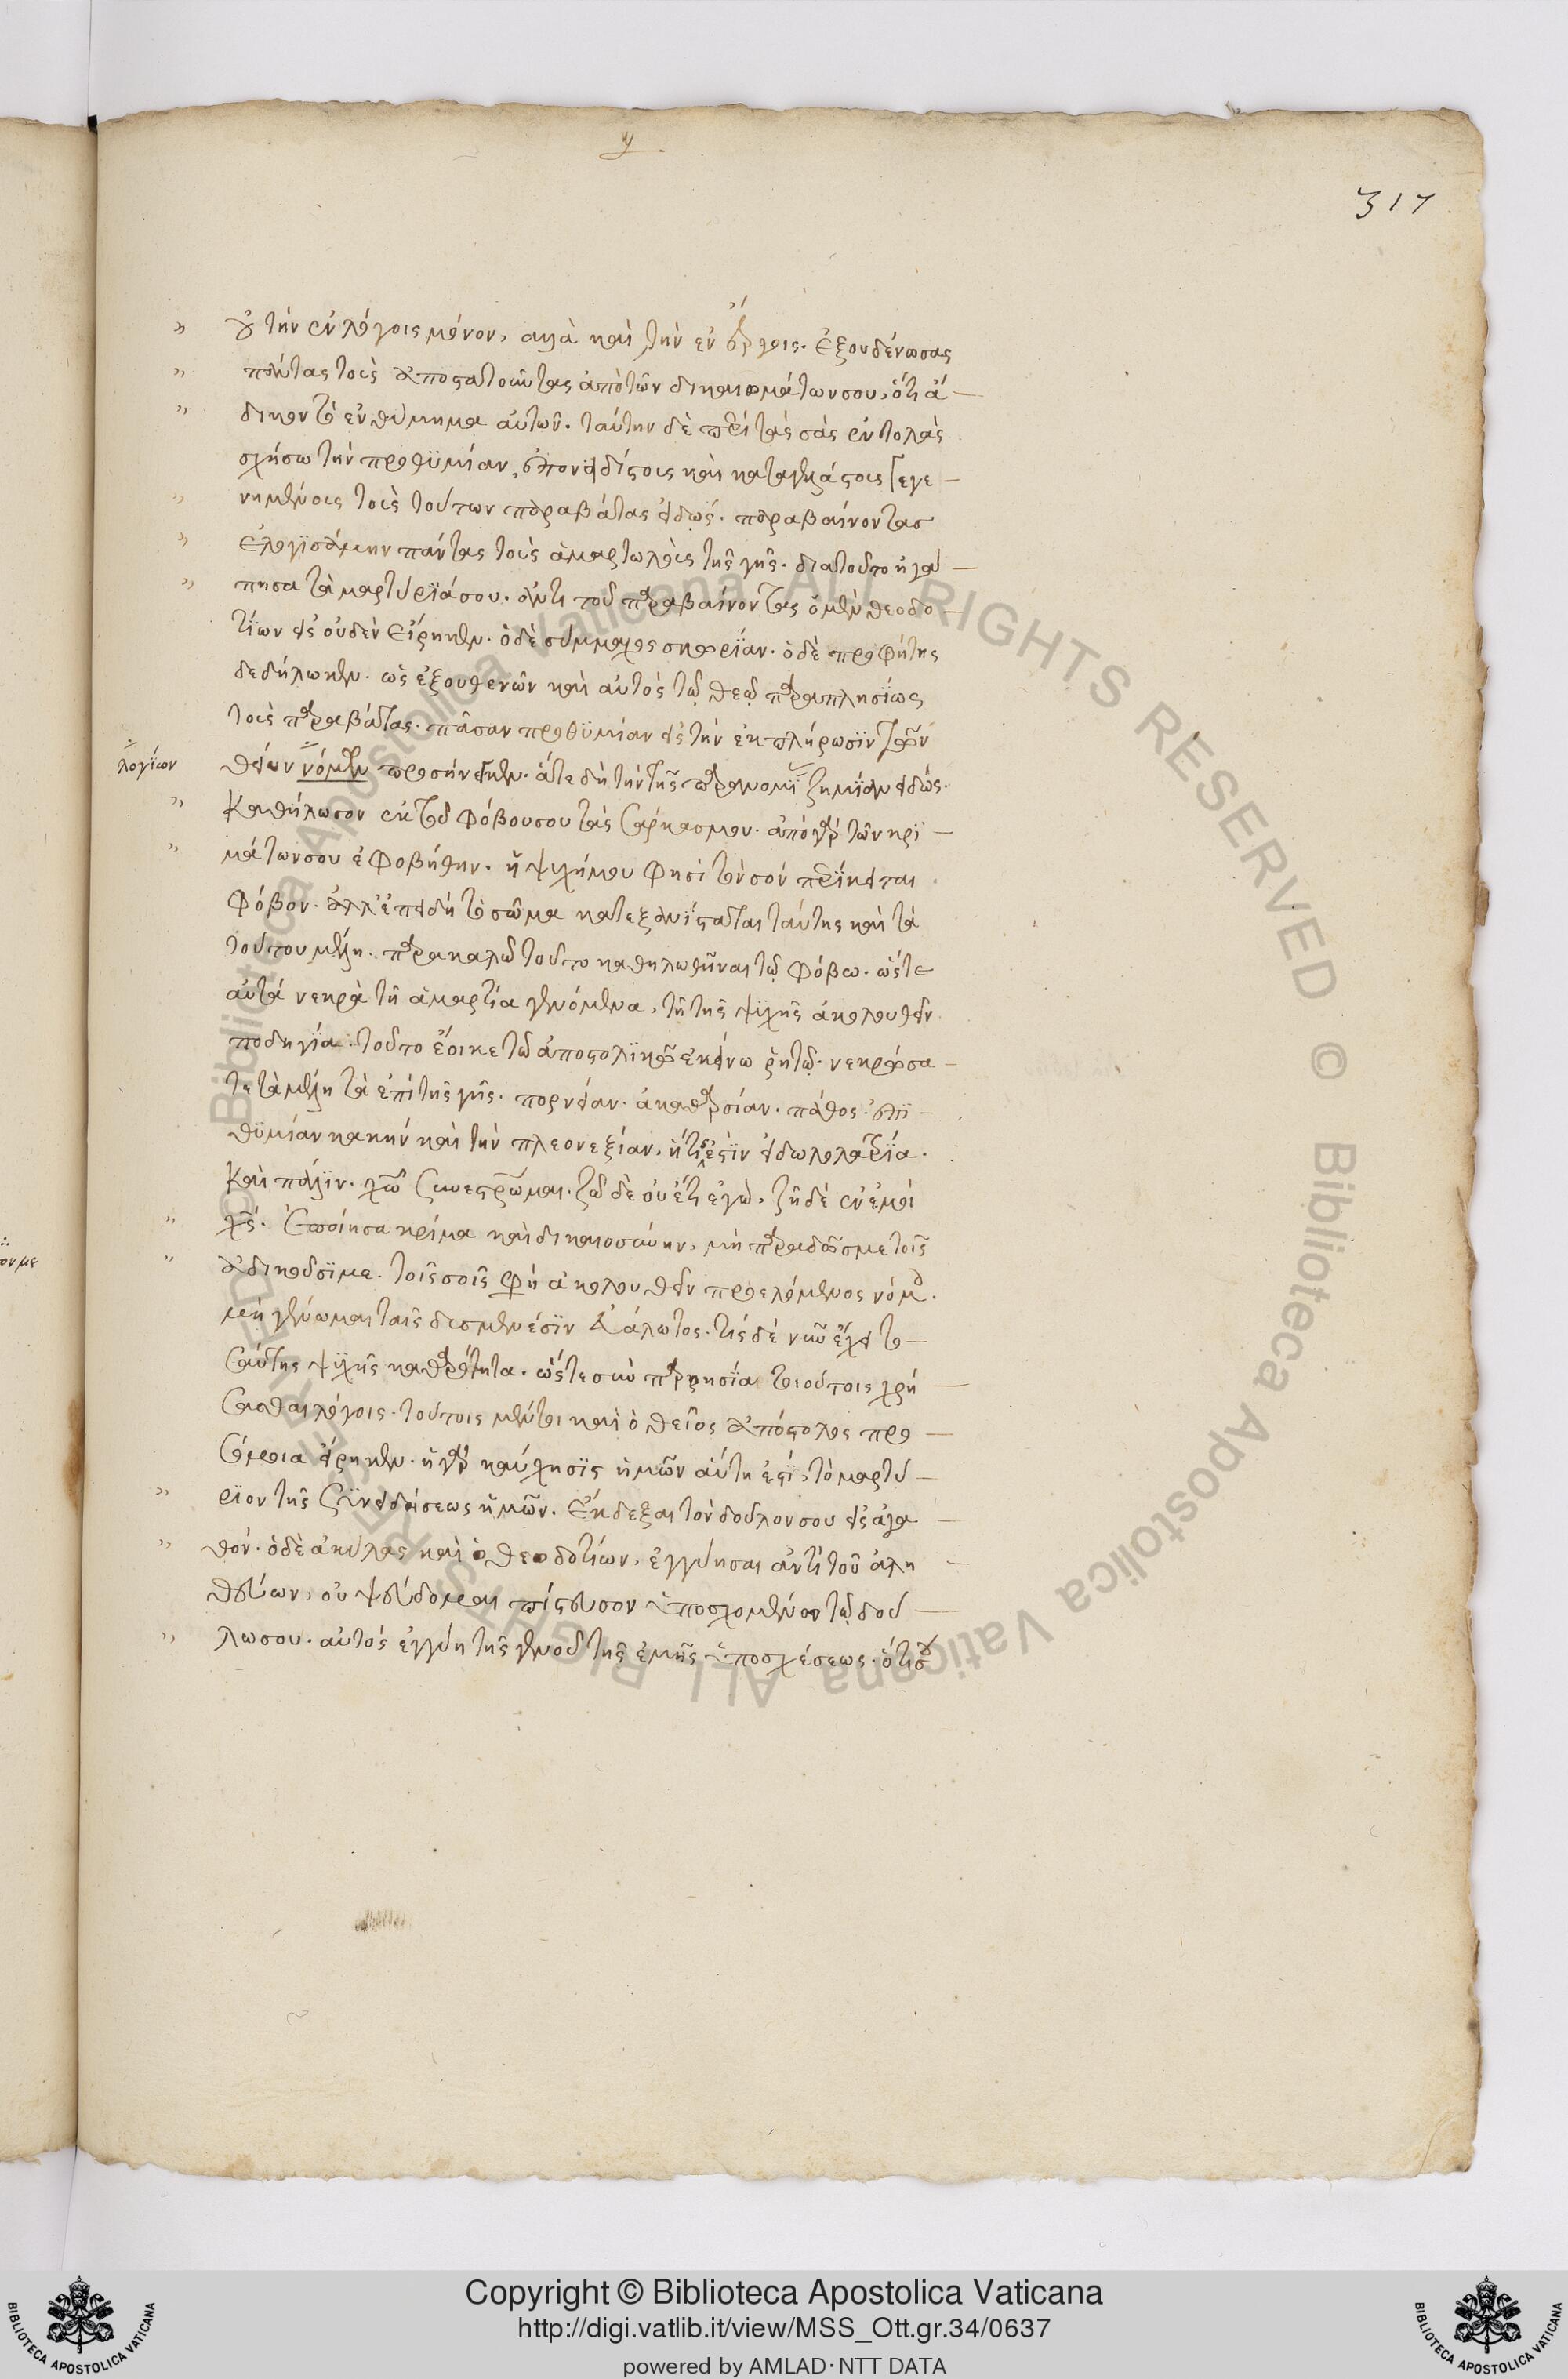 317
οὐ τὴν ἐν λόγοις μόνον, ἀλλὰ καὶ τὴν ἐν ἔργοις. ἐξουδένωσας
πάντας τοὺς ἀποστατοῦντας ἀπὸ τῶν δικαιωμάτων σου, ὅτι ἄ
δικον τὸ ἐνθύμημα αὐτῶν. ταύτην δὲ περὶ τὰς σὰς ἐντολὰς
σχήσω τὴν προθυμίαν, ἐπονειδίστους καὶ καταγελάστους γεγε
νημένους τοὺς τούτων παραβάτας εἰδώς. παραβαίνοντας
ἐλογισάμην πάντας τοὺς ἁμαρτωλοὺς τῆς γῆς. διατοῦτο ἠγά
πησα τὰ μαρτύριά σου. ἀντὶ τοῦ παραβαίνοντας ὁ μὲν θεοδο
τίων εἰς οὐδὲν εἴρηκεν. ὁ δὲ σύμμαχος σκωρίαν. ὁ δὲ προφήτης
δεδήλωκεν. ὡς ἐξουθενῶν καὶ αὐτὸς τῷ θεῷ παραπλησίως
τοὺς παραβάτας. πᾶσαν προθυμίαν εἰς τὴν ἐκπλήρωσιν τῶν
λογίων
θείων νόμων προσήνεγκεν. ἅτε δὴ τὴν τῆς παρανομί ζημίαν εἰδώς.
Καθήλωσον ἐκ τοῦ φόβου σου τὰς σάρκας μου. ἀπὸ γὰρ τῶν κρι
μάτων σου ἐφοβήθην. ἡ ψυχή μου φησὶ τὸν σὸν περίκειται
φόβον. ἀλλ' ἐπειδὴ τὸ σῶμα κατεξανίσταται ταύτης καὶ τὰ
τούτου μέλη. παρακαλῶ τοῦτο καθηλωθῆναι τῷ φόβω. ὥστε
αὐτὰ νεκρὰ τῇ ἁμαρτία γενόμενα, τῇ τῆς ψυχῆς ἀκολουθεῖν
ποδηγία. τοῦτο ἔοικε τῶ ἀποστολικῶ ἐκείνω ῥητῷ. νεκρώσα
τε τὰ μέλη τὰ ἐπὶ τῆς γῆς. πορνείαν. ἀκαθαρσίαν. πάθος. ἐπι
θυμίαν κακὴν καὶ τὴν πλεονεξίαν, ἥτις ἐστὶν εἰδωλολατρία.
Καὶ πάλιν. χω συνεσταύρωμαι. ζῶ δὲ οὐκέτι ἐγὼ, ζῇ δὲ ἐν ἐμοὶ
χς. Ἐποίησα κρίμα καὶ δικαιοσύνην, μὴ παραδῶς με τοῖς
ἀδικοῦσί με. τοῖς σοῖς φη ἀκολουθεῖν προελόμενος νόμοις.
μὴ γένωμαι ταῖς δυσμενέσιν εὐάλωτος. τίς δὲ νῦν ἔχει το
σαύτης ψυχῆς καθαρότητα. ὥστε σὺν παρρησία τοιούτοις χρή
σασθαι λόγοις. τούτοις μέντοι καὶ ὁ θεῖος ἀπόστολος πρ
όμοια εἴρηκεν. ἡ γὰρ καύχησις ἡμῶν αὕτη ἐστί, τὸ μαρτύ
ριον τῆς συνειδήσεως ἡμῶν. Ἔκδεξαι τὸν δοῦλόν σου εἰς ἀγα
θόν. ὁ δὲ ἀκύλας καὶ ὁ θεοδοτίων, ἐγγύησαι ἀντὶ τοῦ ἀλη
θεύων, οὐ ψεύδομαι πίστευσον ὑποσχομένον τῷ δού
λω σου. αὐτὸς ἐγγυητὴς γενοῦ τῆς ἐμῆς ὑποσχέσεως. ὅτι σοῦ
Copyright © Biblioteca Apostolica Vaticana
http://digi.vatlib.it/view/MSS_Ott.gr.34/0637
powered by AMLAD·NTT DATA